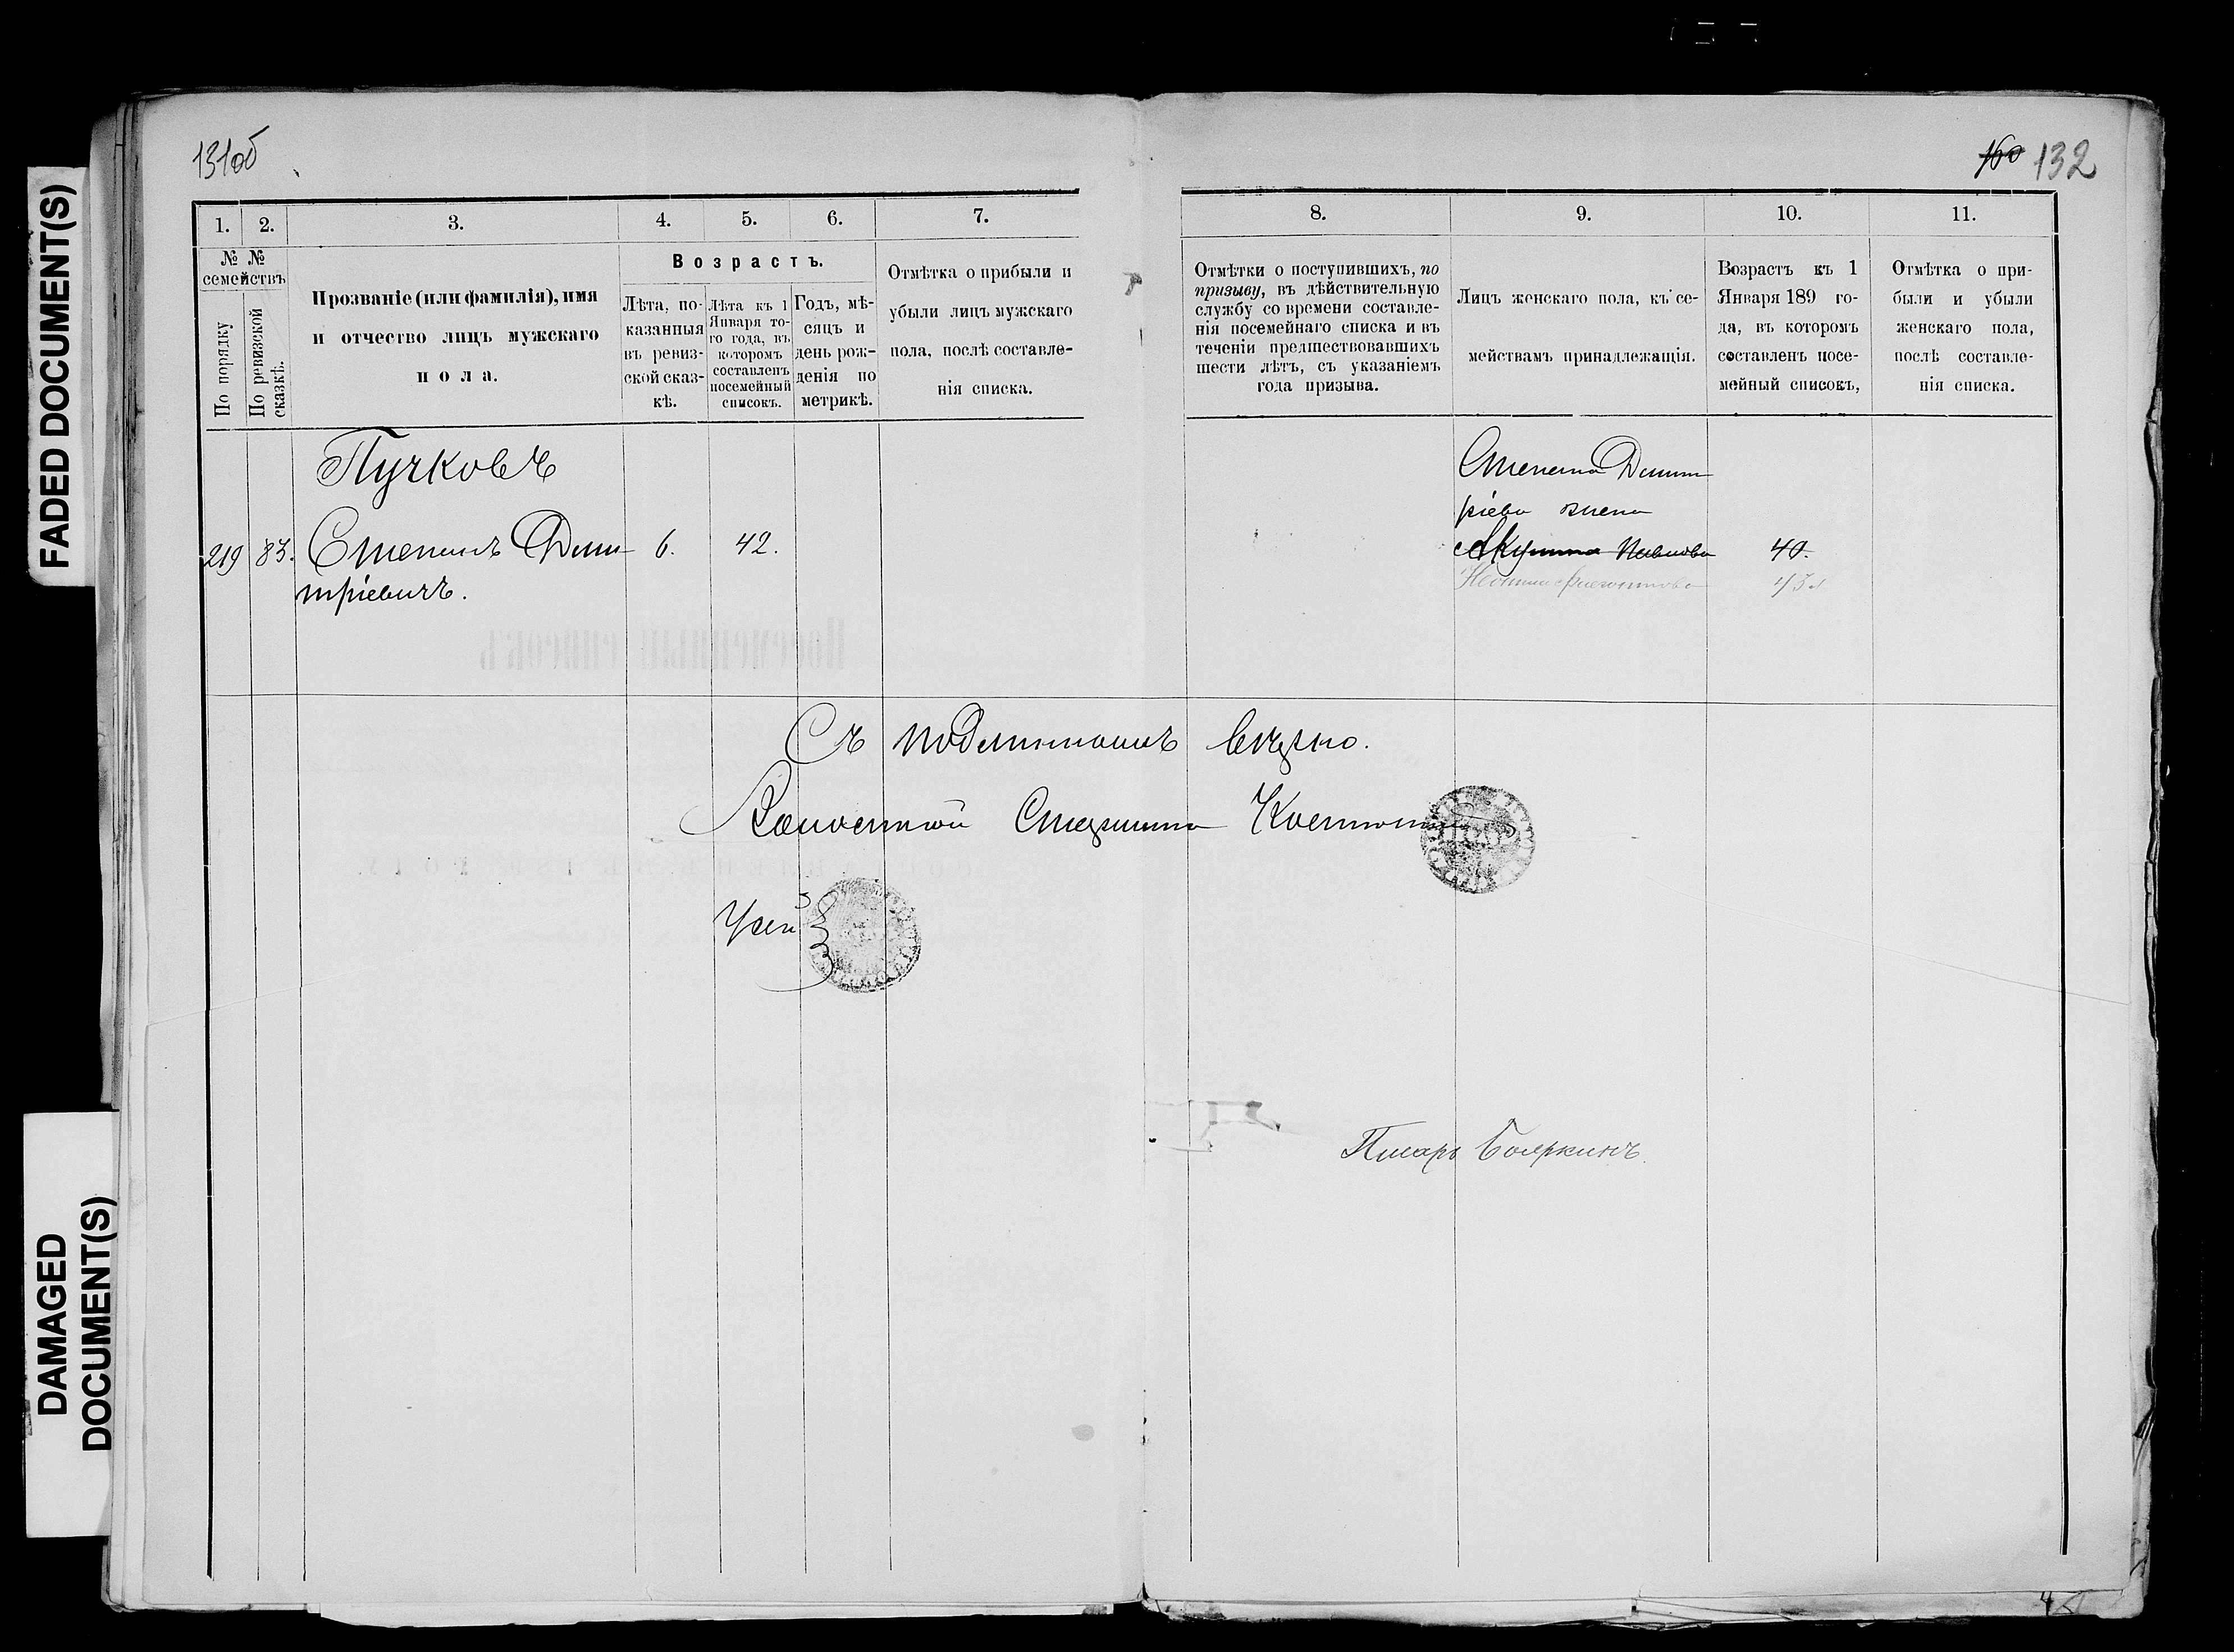 FADED DOCUMENT(S)
DAMAGED
DOCUMENT(S)
131об
160 132
1. 2. 3. 4. 5. 6. 7.
№ №
семействъ
По порядку
По ревизской
сказкѣ.
Прозваніе (или фамилія), имя
и отчество лицъ мужскаго
пола.
Возрастъ.
Лѣта, по-
казанныя
въ ревиз-
ской сказ-
кѣ.
Лѣта къ 1
Января то-
го года, въ
которомъ
составленъ
посемейный
списокъ.
Годъ, мѣ-
сяцъ и
день рож-
денія по
метрикѣ.
Отмѣтка о прибыли и
убыли лицъ мужскаго
пола, послѣ составле-
нія списка.
8. 9. 10. 11.
Отмѣтки о поступившихъ, по
призыву, въ дѣйствительную
службу со времени составле-
нія посемейнаго списка и въ
теченіи предшествовавшихъ
шести лѣтъ, съ указаніемъ
года призыва.
Лицъ женскаго пола, къ се-
мействамъ принадлежащія.
Возрастъ къ 1
Января 189 го-
да, въ которомъ
составленъ посе-
мейный списокъ,
Отмѣтка о при-
были и убыли
женскаго пола,
послѣ составле-
нія списка.
Пучковъ
219 83. Степанъ Дим 6. 42.
тріевичъ.
Степана Димит
ріева жена
Акулина Павлова 40.
43
Съ подлиннымъ вѣрно.
Волостной Старшина
Писарь Бояркинъ